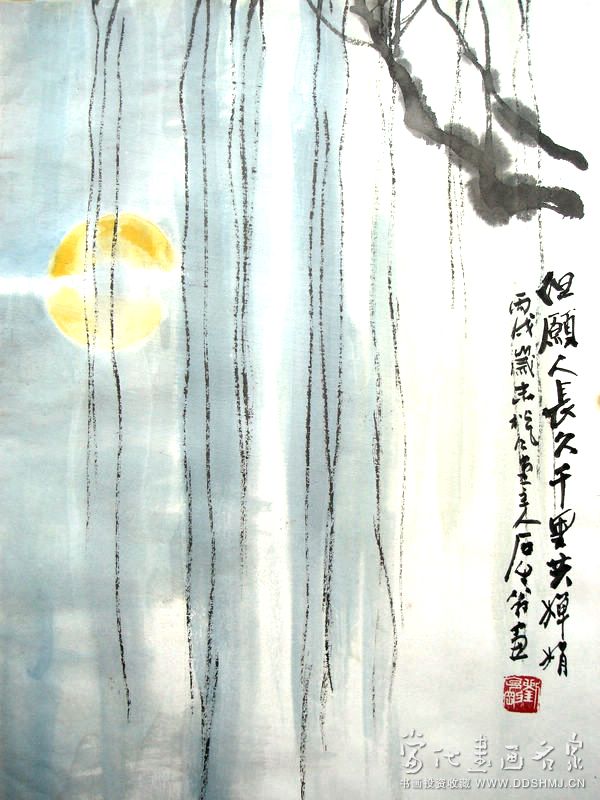 但願人長久千里共嬋娟
丙戌歲末松風畫室主人石生翁畫
當代書画名家
书画投资收藏 WWW.DDSHMJ.CN